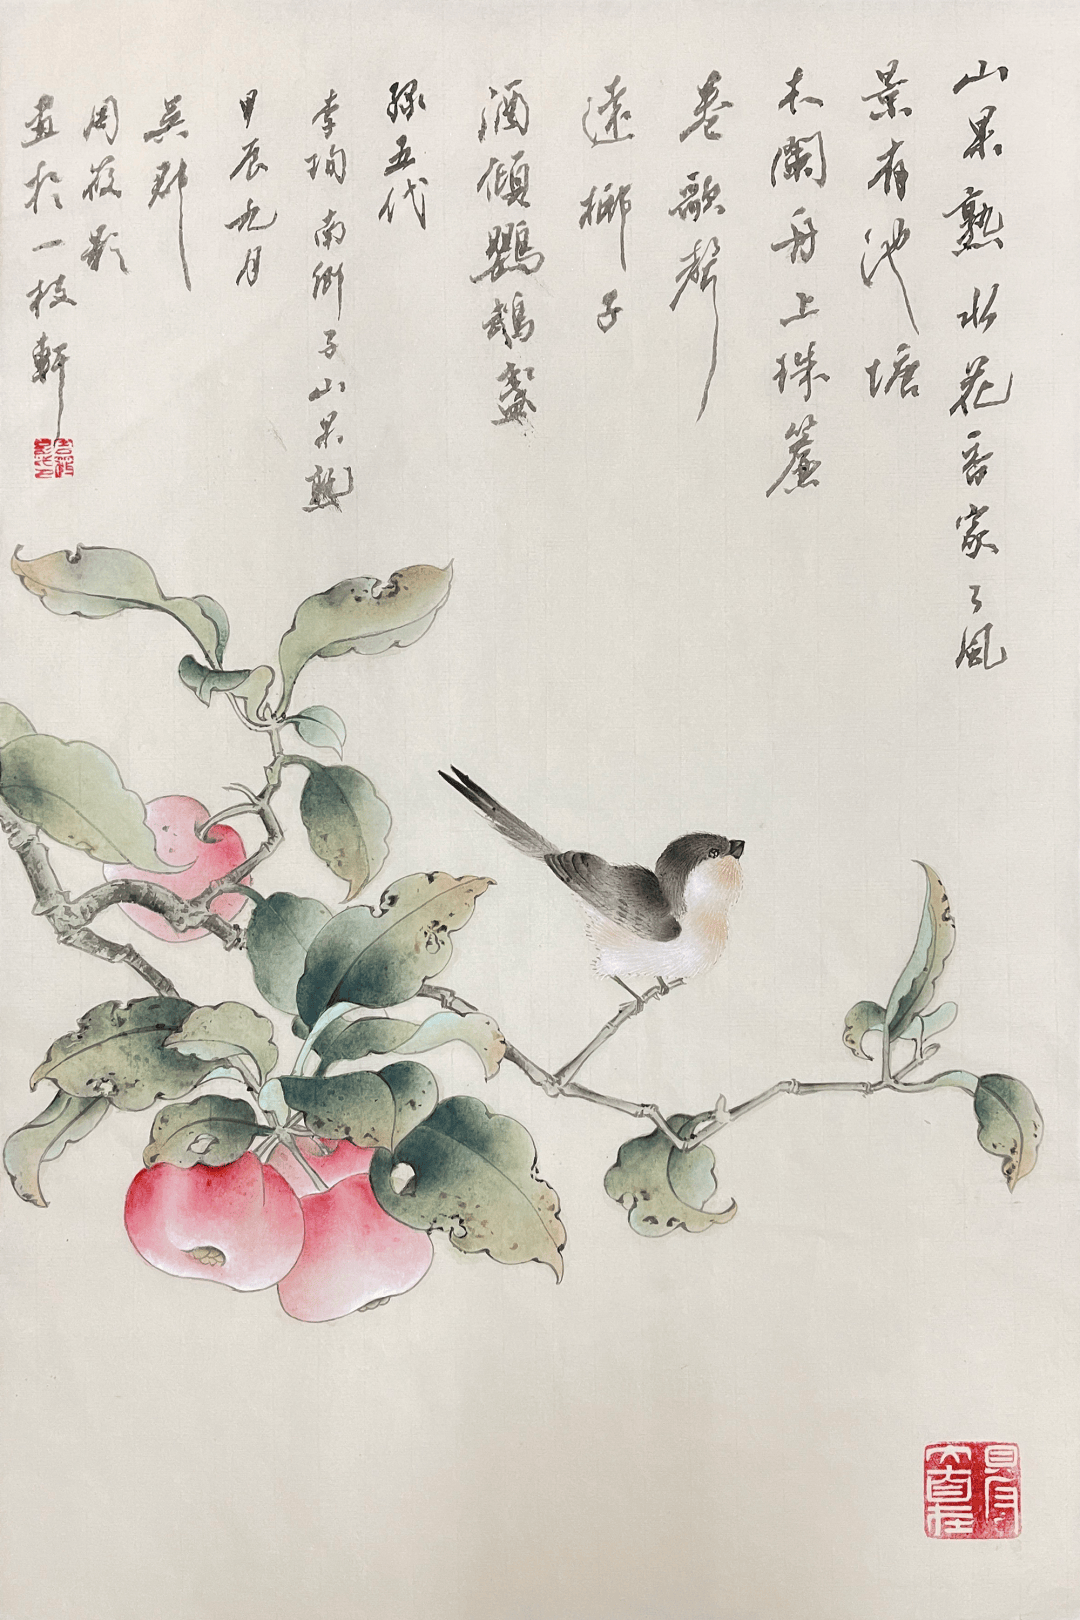 山果熟水花香家々風
景有池塘
木蘭舟上珠簾
卷歌聲
遠椰子
酒傾鸚鵡盞
錄五代
李珣南鄉子山果熟
甲辰九月
吳郡
周
畫於一枝軒